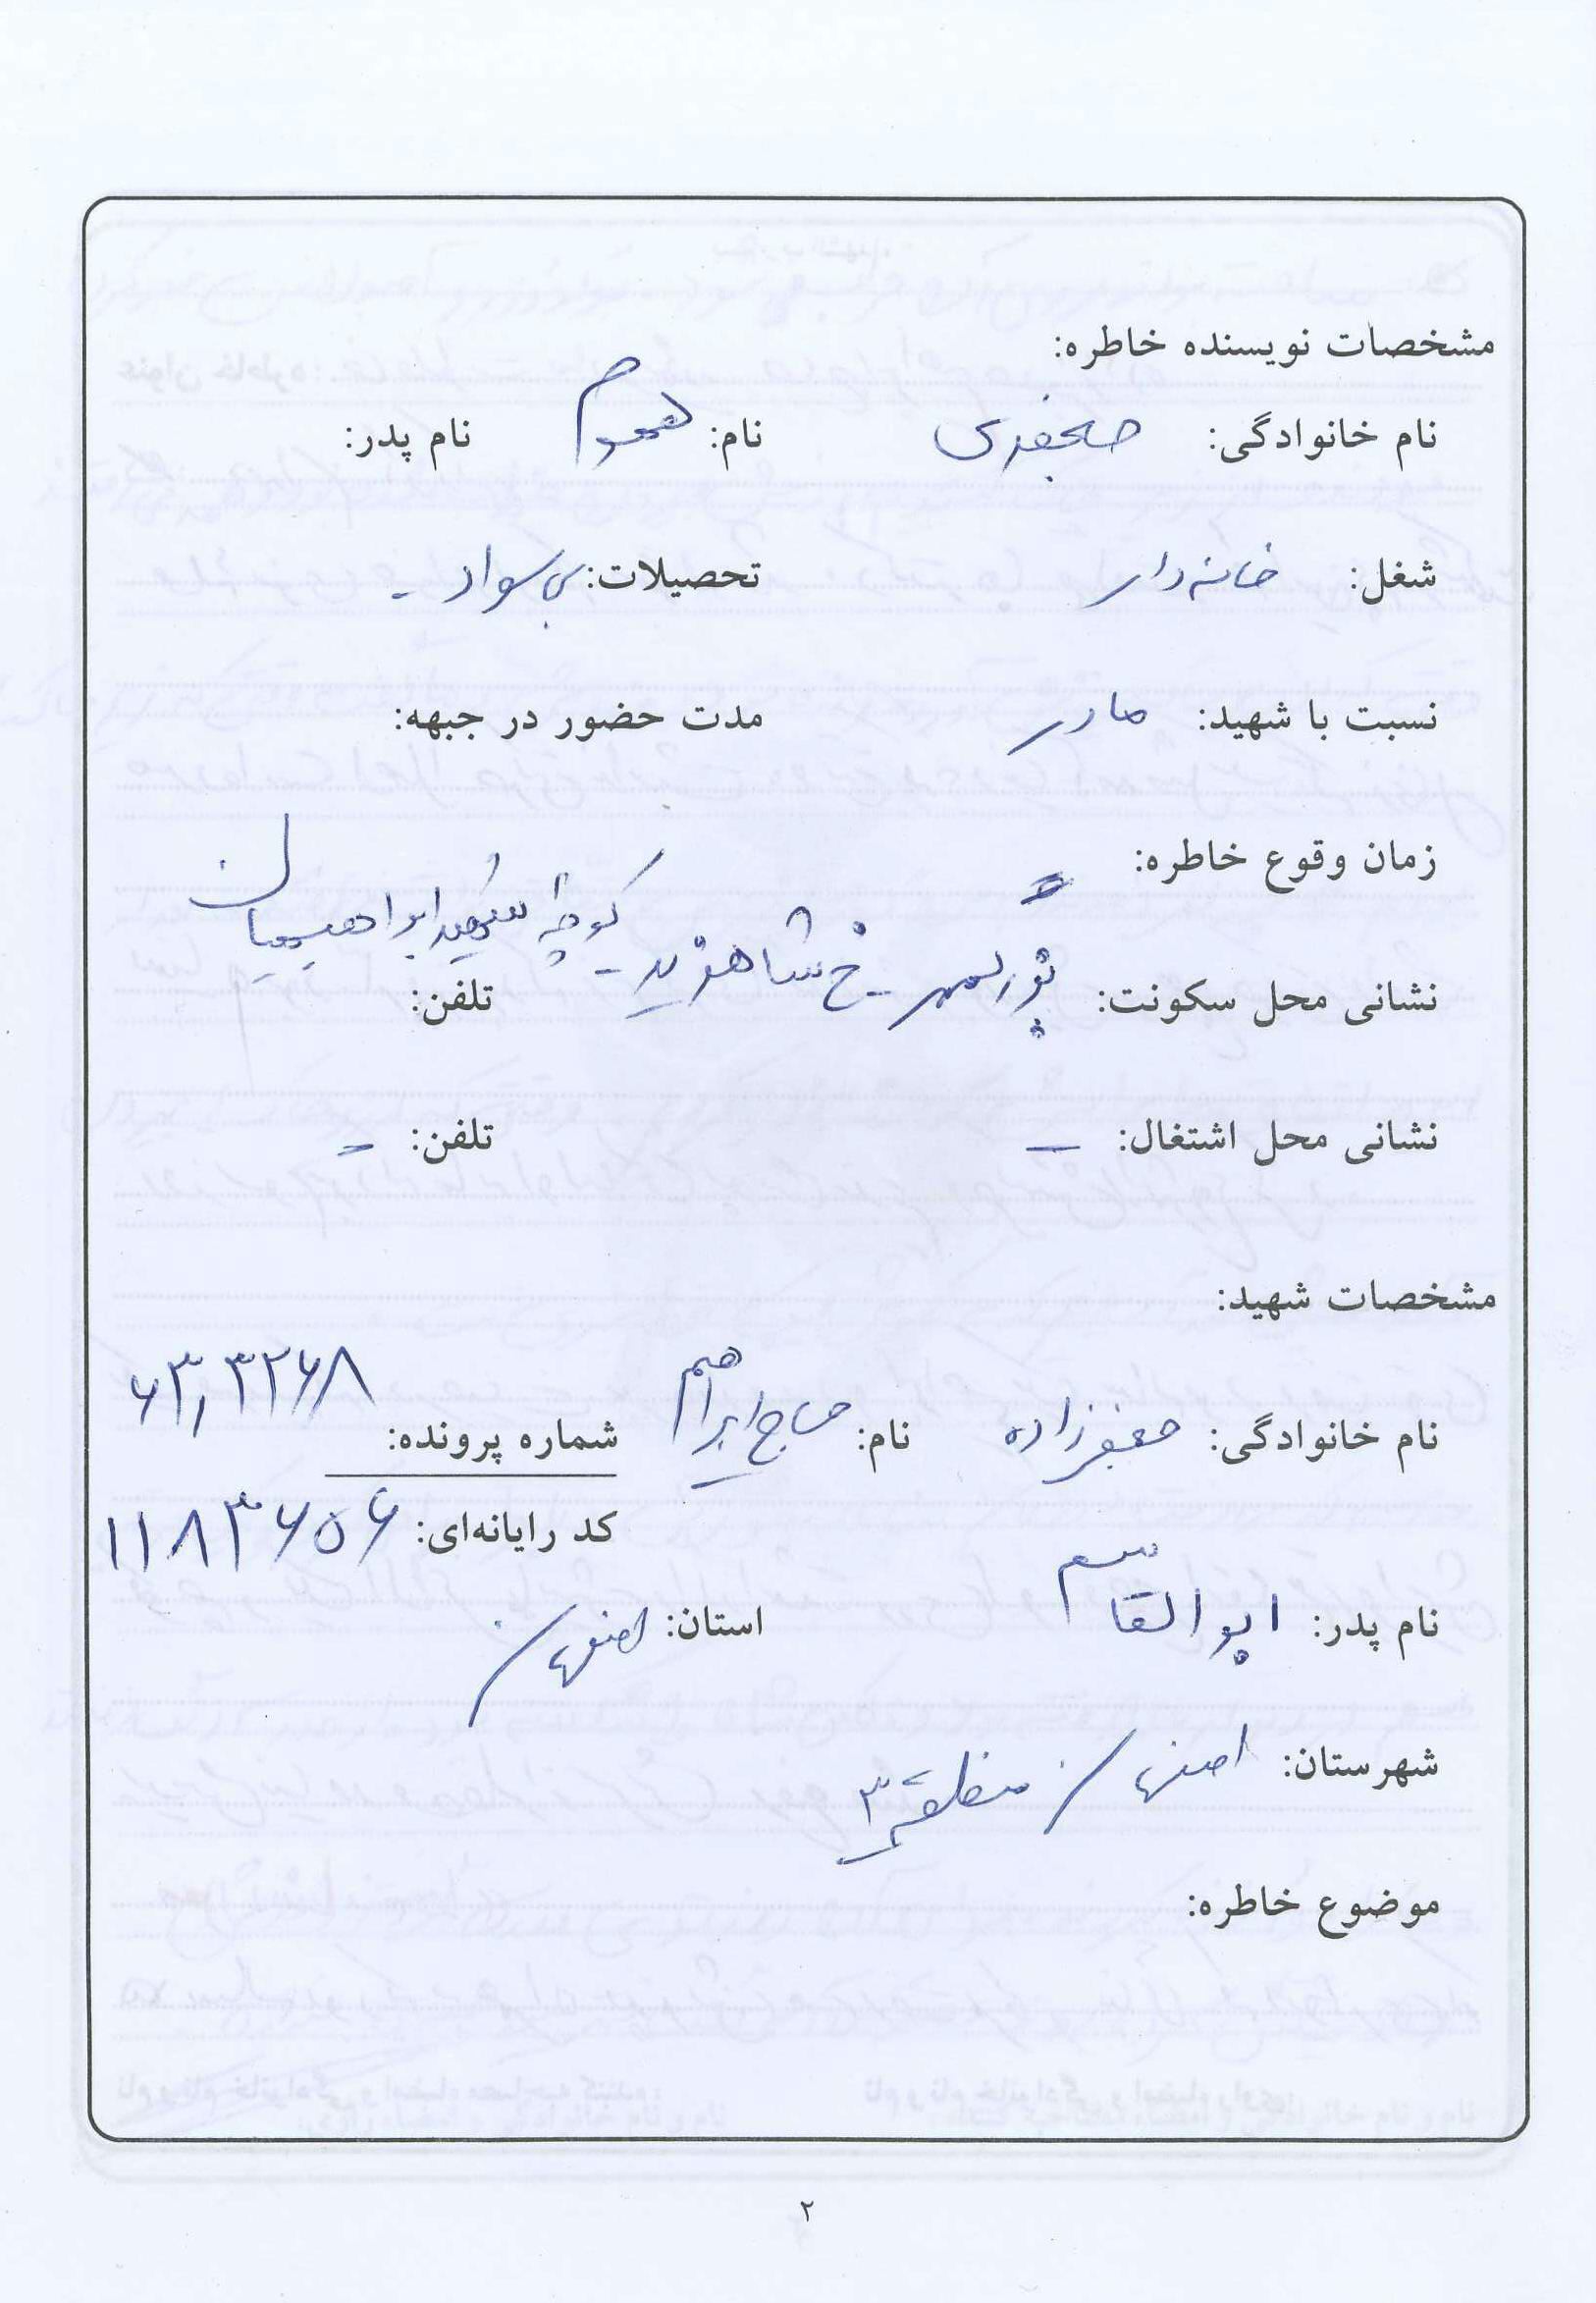 مشخصات نویسنده خاطره:
نام خانوادگی: نام: معصوم نام پدر:
شغل: خانه دار تحصیلات: بی سواد -
نسبت با شهید: مادر مدت حضور در جبهه:
زمان وقوع خاطره:
نشانی محل سکونت: - خ - کوچه شهید ابراهیمیان تلفن:
نشانی محل اشتغال: - تلفن: -
مشخصات شهید:
نام خانوادگی: جعفرزاده نام: حاج ابراهیم شماره پرونده: ۶۳,۳۲۶۸
کد رایانه‌ای: ۱۱۸۳۶۵۶
نام پدر: ابوالقاسم استان: اصفهان
شهرستان: اصفهان منطقه ۳
موضوع خاطره:
۲